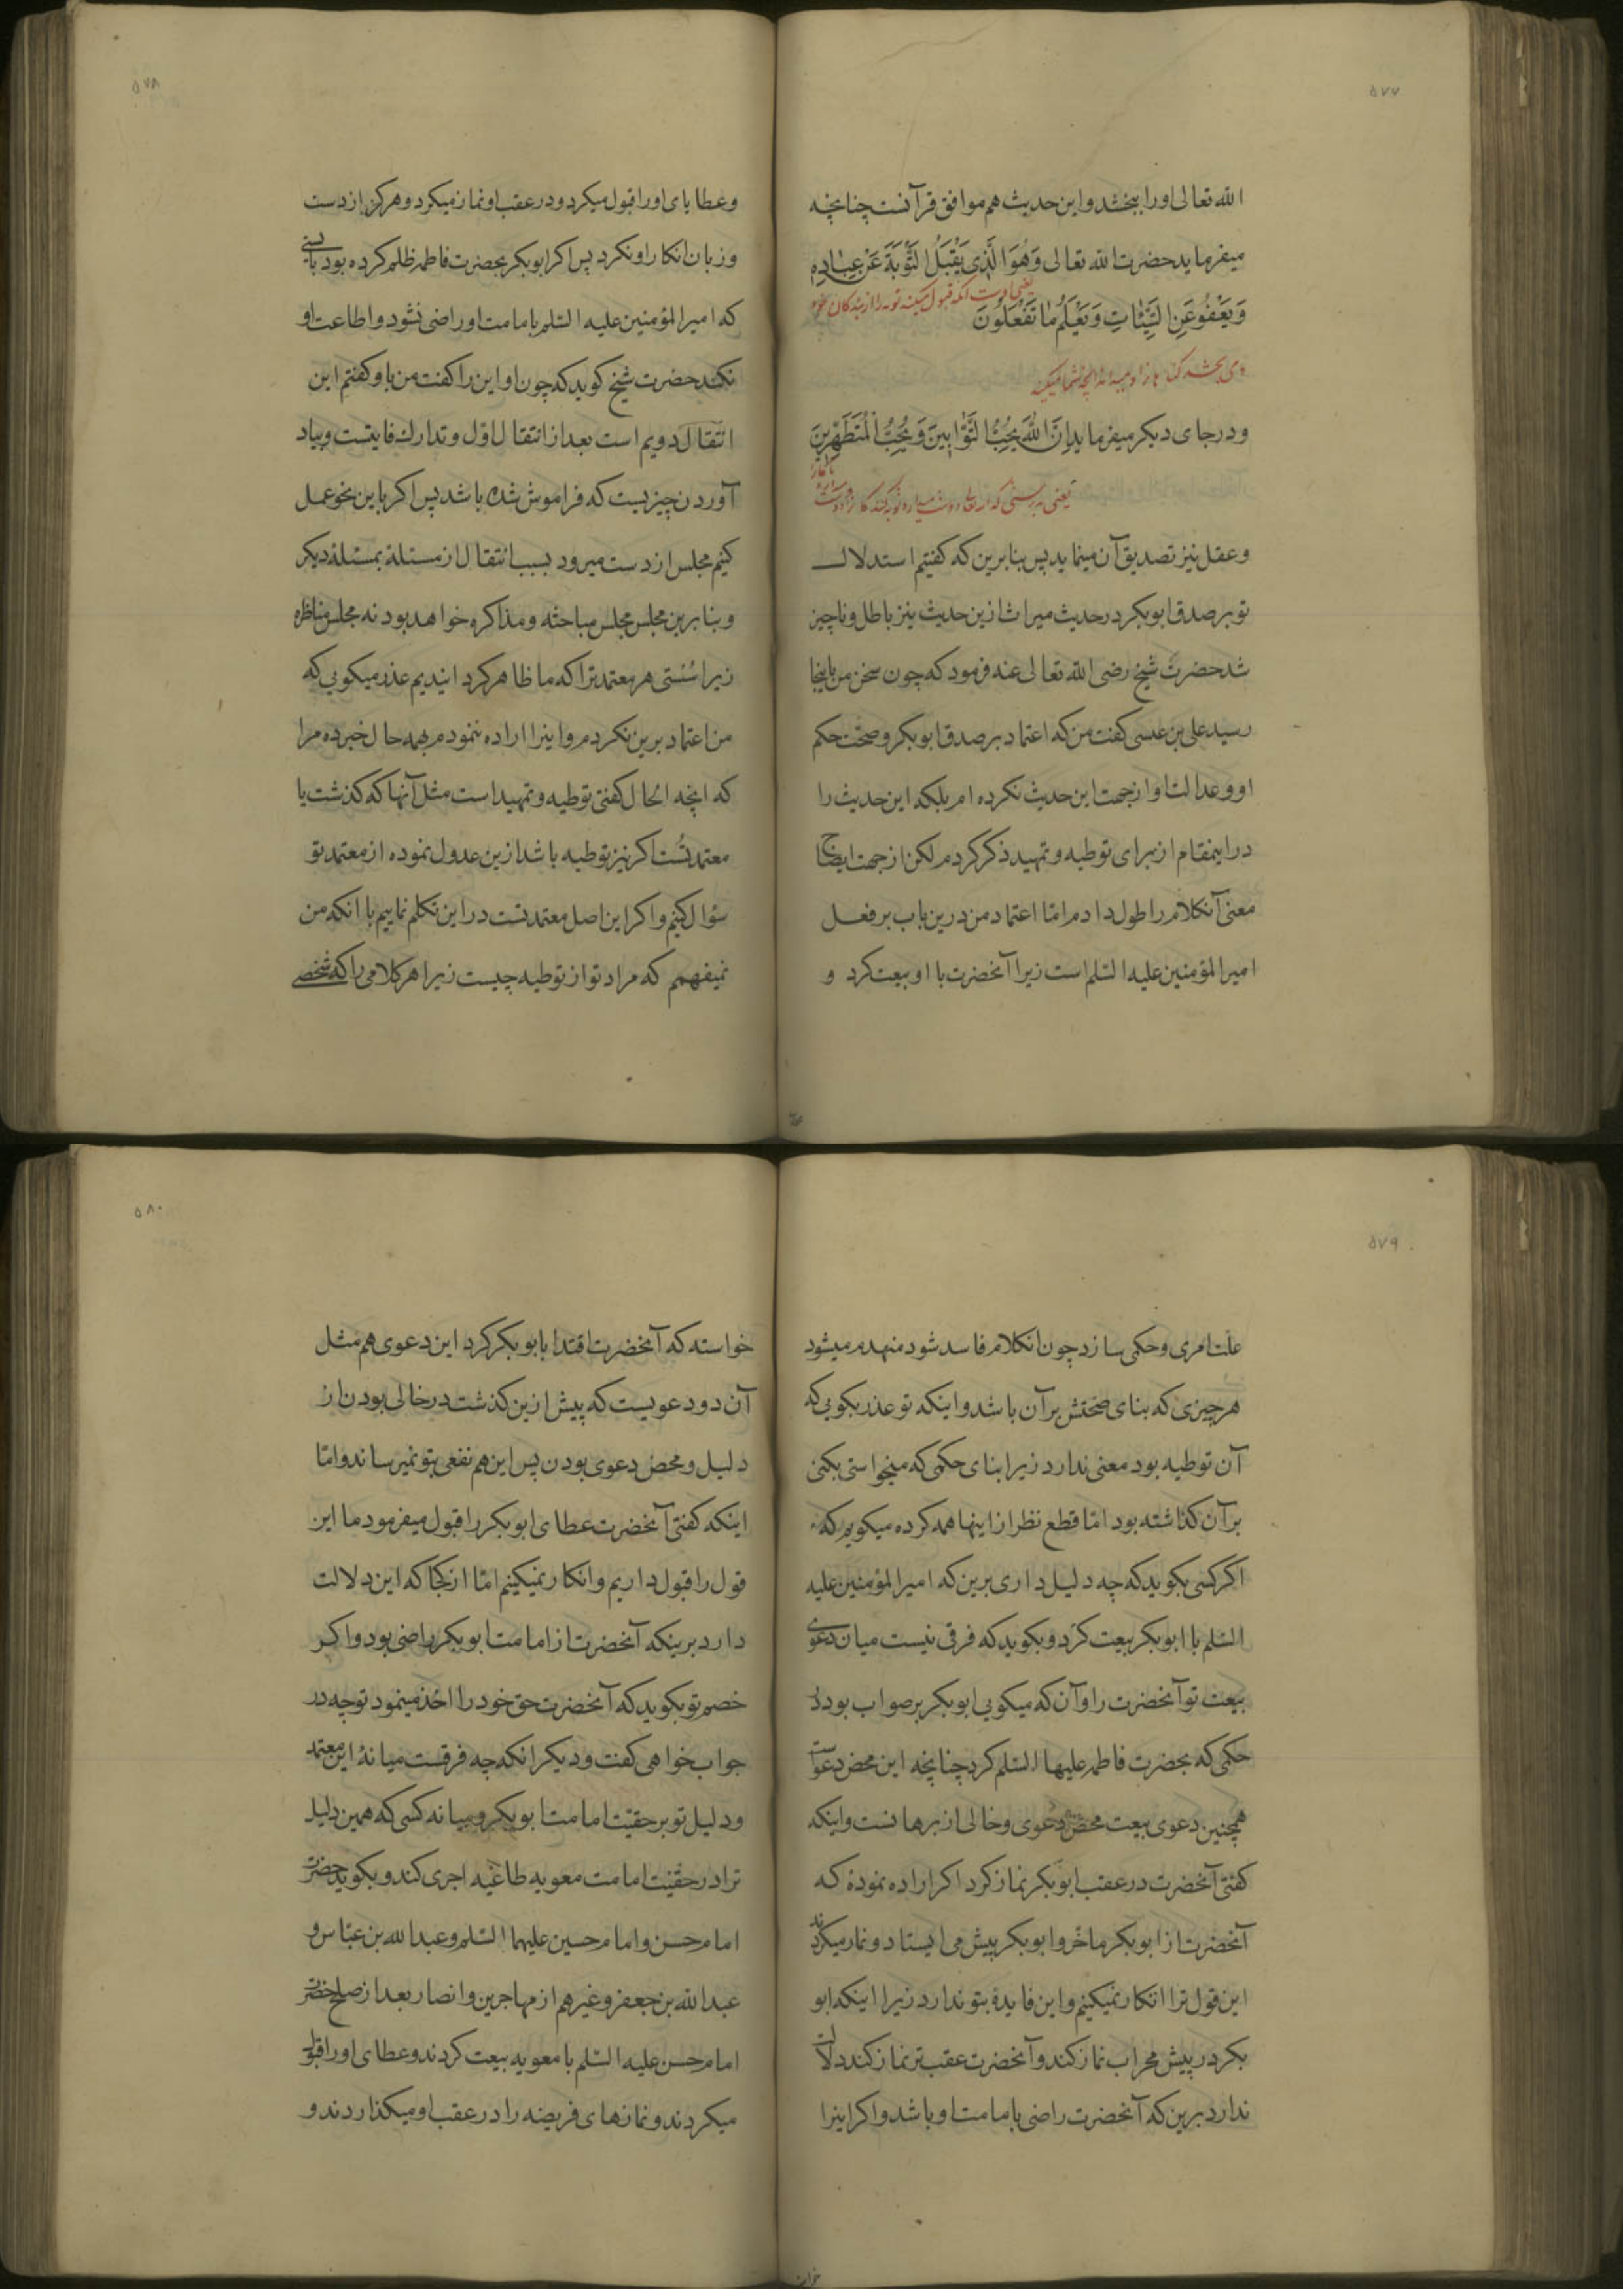 ۵۷۷
الله تعالی اورا ببخشد و این حدیث هم موافق قرآنست چنانچه
میفرماید حضرت الله تعالی وَهُوَ الَّذِی یَقْبَلُ التَّوْبَةَ عَنْ عِبادِهِ
یعنی اوست انکه قبول میکند توبه را از بندگان خود
وَیَعْفُو عَنِ السَّیِّئاتِ وَیَعْلَمُ ما تَفْعَلُونَ
و می بخشد گناه ها را و میداند آنچه شما میکنید
و در جای دیگر میفرماید اِنَّ اللّهَ یُحِبُّ التَّوّابِینَ وَیُحِبُّ الْمُتَطَهِّرِینَ
یعنی بدرستی که الله تعالی دوست میدارد توبه کنندگان را و دوست
میدارد پاکان را
و عقل نیز تصدیق آن مینماید پس بنابرین که گفتیم استدلال
تو بر صدق ابوبکر در حدیث میراث ازین حدیث نیز باطل و ناچیز
شد حضرت شیخ رضی الله تعالی عنه فرمود که چون سخن من باینجا
رسید علی بن عیسی کفت من که اعتماد بر صدق ابوبکر و صحّت حکم
او و عدالت او از جهت این حدیث نکرده ام بلکه این حدیث را
در اینمقام از برای توطیه و تمهید ذکر کردم لکن از جهت ایضاح
معنی آنکلام را طول دادم امّا اعتماد من درین باب بر فعل
امیر المؤمنین علیه السّلم است زیرا آنحضرت با او بیعت کرد و
۵۷۸
و عطایای او را قبول میکرد و در عقب او نماز میکرد و هرکز از دست
و زبان انکار او نکرد پس اکر ابوبکر بحضرت فاطمه ظلم کرده بود بایستی
که امیر المؤمنین علیه السّلم بامامت او راضی نشود و اطاعت او
نکند حضرت شیخ کوید که چون او این را کفت من با و کفتم این
انتقال دویم است بعد از انتقال اوّل و تدارك فایتست و بیاد
آوردن چیزیست که فراموش شده باشد پس اکر باین نحو عمل
کنیم مجلس از دست میرود بسبب انتقال از مسئلهٔ بمسئلهٔ دیکر
و بنابرین مجلس مجلس مباحثه و مذاکره خواهد بود نه مجلس مناظره
زیرا سُستی هر معتمد ترا که ما ظاهر کردانیدیم عذر میکویی که
من اعتماد برین نکردم و اینرا اراده ننمودم بهمه حال خبر ده مرا
که انچه الحال کفتی توطیه و تمهید است مثل آنها که کذشت یا
معتمد تُست اکر نیز توطیه باشد ازین عدول نموده از معتمد تو
سؤال کنیم و اکر این اصل معتمد تست در این تکلم نماییم با انکه من
نمیفهمم که مراد تو از توطیه چیست زیرا هر کلامی را که شخصی
۵۷۹
علت امری و حکمی سازد چون انکلام فاسد شود منهدم میشود
هر چیزی که بنای صحّتش بر آن باشد و اینکه تو عذر بکویی که
آن توطیه بود معنی ندارد زیرا بنای حکمی که میخواستی بکنی
بر آن کذاشته بود امّا قطع نظر از اینها همه کرده میکویم که
اکر کسی بکوید که چه دلیل داری برین که امیر المؤمنین علیه
السّلم با ابوبکر بیعت کرد و بکوید که فرقی نیست میان دعوی
بیعت تو آنحضرت را و آن که میکویی ابوبکر بر صواب بود در
حکمی که بحضرت فاطمه علیها السّلم کرد چنانچه این محض دعوی است
همچنین دعوی بیعت محض دعوی و خالی از برهانست و اینکه
کفتی آنحضرت در عقب ابوبکر نماز کرد اکر اراده نمودهٔ که
آنحضرت از ابوبکر ماخر و ابوبکر پیش می ایستاد و نماز میکردند
این قول ترا انکار نمیکنیم و این فایدهٔ بتو ندارد زیرا اینکه ابو
بکر در پیش محراب نماز کند و آنحضرت عقب تر نماز کند دلالت
ندارد برین که آنحضرت راضی بامامت او باشد و اکر اینرا
خواسته
۵۸۰
خواسته که آنحضرت اقتدا بابوبکر کرد این دعوی هم مثل
آن دو دعویست که پیش ازین کذشت در خالی بودن از
دلیل و محض دعوی بودن پس این هم نفعی بتو نمیرساند و امّا
اینکه کفتی آنحضرت عطای ابوبکر را قبول میفرمود ما این
قول را قبول داریم و انکار نمیکنیم امّا از کجا که این دلالت
دارد برینکه آنحضرت از امامت ابوبکر راضی بود و اکر
خصم تو بکوید که آنحضرت حق خود را اخذ مینمود تو چه در
جواب خواهی کفت و دیکر انکه چه فرقست میانهٔ این معتمد
و دلیل تو بر حقیّت امامت ابوبکر و میانه کسی که همین دلیل
ترا در حقیّت امامت معویه طاغیه اجری کند و بکوید حضرت
امام حسن و امام حسین علیهما السّلم و عبد الله بن عبّاس و
عبد الله بن جعفر و غیرهم از مهاجرین و انصار بعد از صلح حضرت
امام حسن علیه السّلم با معویه بیعت کردند و عطای او را قبول
میکردند و نمازهای فریضه را در عقب او میکذاردند و